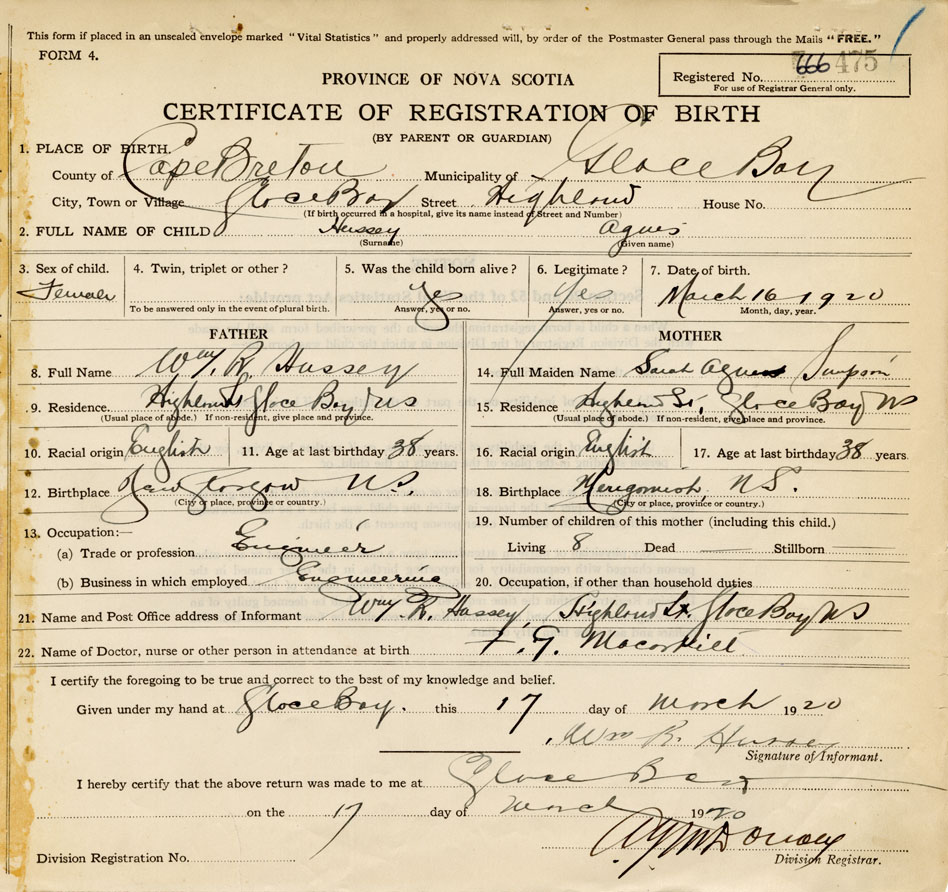 This form if placed in an unsealed envelope marked "Vital Statistics" and properly addressed will, by order of the Postmaster General pass through the Mails "FREE."
FORM 4.
PROVINCE OF NOVA SCOTIA
Registered No. 666 475
For use of Registrar General only.
CERTIFICATE OF REGISTRATION OF BIRTH
(BY PARENT OR GUARDIAN)
1. PLACE OF BIRTH.
County of Cape Breton Municipality of Glace Bay
City, Town or Village Glace Bay Street Highland House No.
(If birth occurred in a hospital, give its name instead of Street and Number)
2. FULL NAME OF CHILD Hussey Agnes
(Surname) (Given name)
3. Sex of child. 4. Twin, triplet or other? 5. Was the child born alive? 6. Legitimate? 7. Date of birth.
Female Yes Yes March 16 1920
To be answered only in the event of plural birth. Answer, yes or no. Answer, yes or no. Month, day, year.
FATHER MOTHER
8. Full Name Wm. R. Hussey 14. Full Maiden Name Sarah Agnes Simpson
9. Residence. Highland St Glace Bay NS 15. Residence Highland St, Glace Bay NS
(Usual place of abode.) If non-resident, give place and province. (Usual place of abode.) If non-resident, give place and province.
10. Racial origin English 11. Age at last birthday 38 years. 16. Racial origin English 17. Age at last birthday 38 years.
12. Birthplace New Glasgow N.S. 18. Birthplace Merigomish, N.S.
(City or place, province or country.) (City or place, province or country.)
13. Occupation:— 19. Number of children of this mother (including this child.)
(a) Trade or profession Engineer Living 8 Dead — Stillborn —
(b) Business in which employed Engineering 20. Occupation, if other than household duties
21. Name and Post Office address of Informant Wm R. Hussey, Highland St. Glace Bay NS
22. Name of Doctor, nurse or other person in attendance at birth
I certify the foregoing to be true and correct to the best of my knowledge and belief.
Given under my hand at Glace Bay. this 17 day of March 1920
Wm R. Hussey
Signature of Informant.
I hereby certify that the above return was made to me at Glace Bay
on the 17 day of March 1920
Division Registration No. Division Registrar.